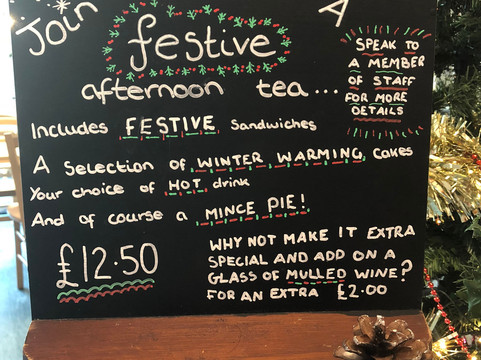 Join A
festive
afternoon tea...
SPEAK TO
A MEMBER
OF STAFF
FOR MORE
DETAILS
Includes FESTIVE Sandwiches
A Selection of WINTER WARMING Cakes
Your choice of HOT drink
And of course a MINCE PIE!
£12.50
WHY NOT MAKE IT EXTRA
SPECIAL AND ADD ON A
GLASS OF MULLED WINE?
FOR AN EXTRA £2.00